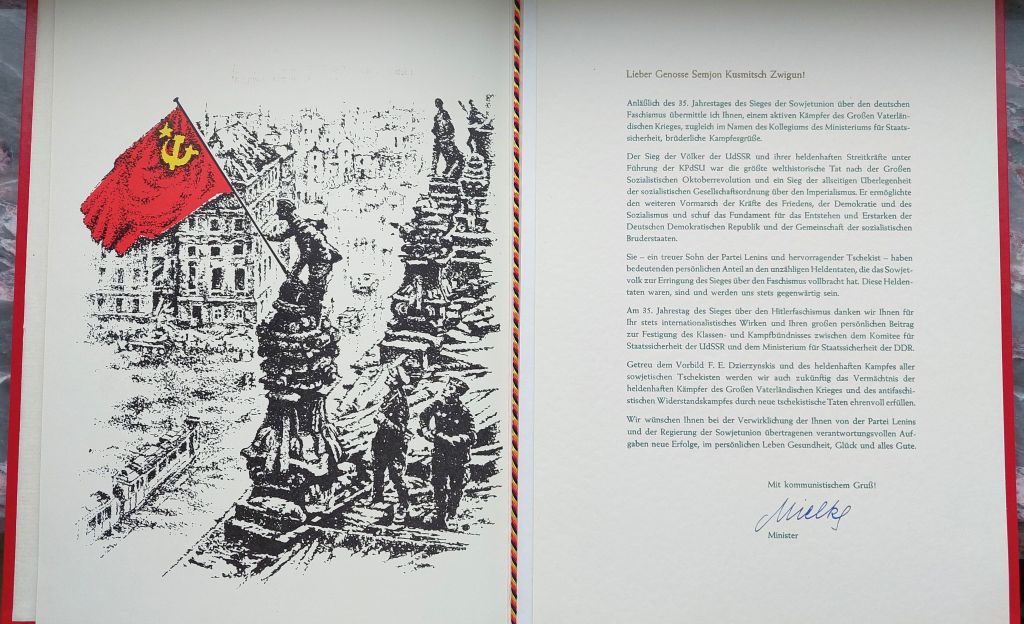 Lieber Genosse Semjon Kusmitsch Zwigun!
Anläßlich des 35. Jahrestages des Sieges der Sowjetunion über den deutschen
Faschismus übermittle ich Ihnen, einem aktiven Kämpfer des Großen Vaterlän-
dischen Krieges, zugleich im Namen des Kollegiums des Ministeriums für Staats-
sicherheit, brüderliche Kampfesgrüße.
Der Sieg der Völker der UdSSR und ihrer heldenhaften Streitkräfte unter
Führung der KPdSU war die größte welthistorische Tat nach der Großen
Sozialistischen Oktoberrevolution und ein Sieg der allseitigen Überlegenheit
der sozialistischen Gesellschaftsordnung über den Imperialismus. Er ermöglichte
den weiteren Vormarsch der Kräfte des Friedens, der Demokratie und des
Sozialismus und schuf das Fundament für das Entstehen und Erstarken der
Deutschen Demokratischen Republik und der Gemeinschaft der sozialistischen
Bruderstaaten.
Sie – ein treuer Sohn der Partei Lenins und hervorragender Tschekist – haben
bedeutenden persönlichen Anteil an den unzähligen Heldentaten, die das Sowjet-
volk zur Erringung des Sieges über den Faschismus vollbracht hat. Diese Helden-
taten waren, sind und werden uns stets gegenwärtig sein.
Am 35. Jahrestag des Sieges über den Hitlerfaschismus danken wir Ihnen für
Ihr stets internationalistisches Wirken und Ihren großen persönlichen Beitrag
zur Festigung des Klassen- und Kampfbündnisses zwischen dem Komitee für
Staatssicherheit der UdSSR und dem Ministerium für Staatssicherheit der DDR.
Getreu dem Vorbild F. E. Dzierzynskis und des heldenhaften Kampfes aller
sowjetischen Tschekisten werden wir auch zukünftig das Vermächtnis der
heldenhaften Kämpfer des Großen Vaterländischen Krieges und des antifaschi-
stischen Widerstandskampfes durch neue tschekistische Taten ehrenvoll erfüllen.
Wir wünschen Ihnen bei der Verwirklichung der Ihnen von der Partei Lenins
und der Regierung der Sowjetunion übertragenen verantwortungsvollen Auf-
gaben neue Erfolge, im persönlichen Leben Gesundheit, Glück und alles Gute.
Mit kommunistischem Gruß!
Mielke
Minister